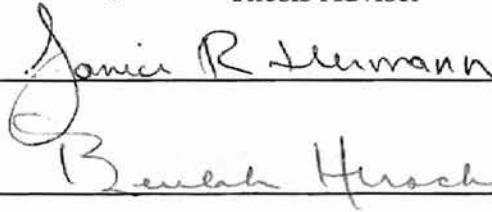 Thesis Adviser
Janice R Hermann
Beulah Hirsch